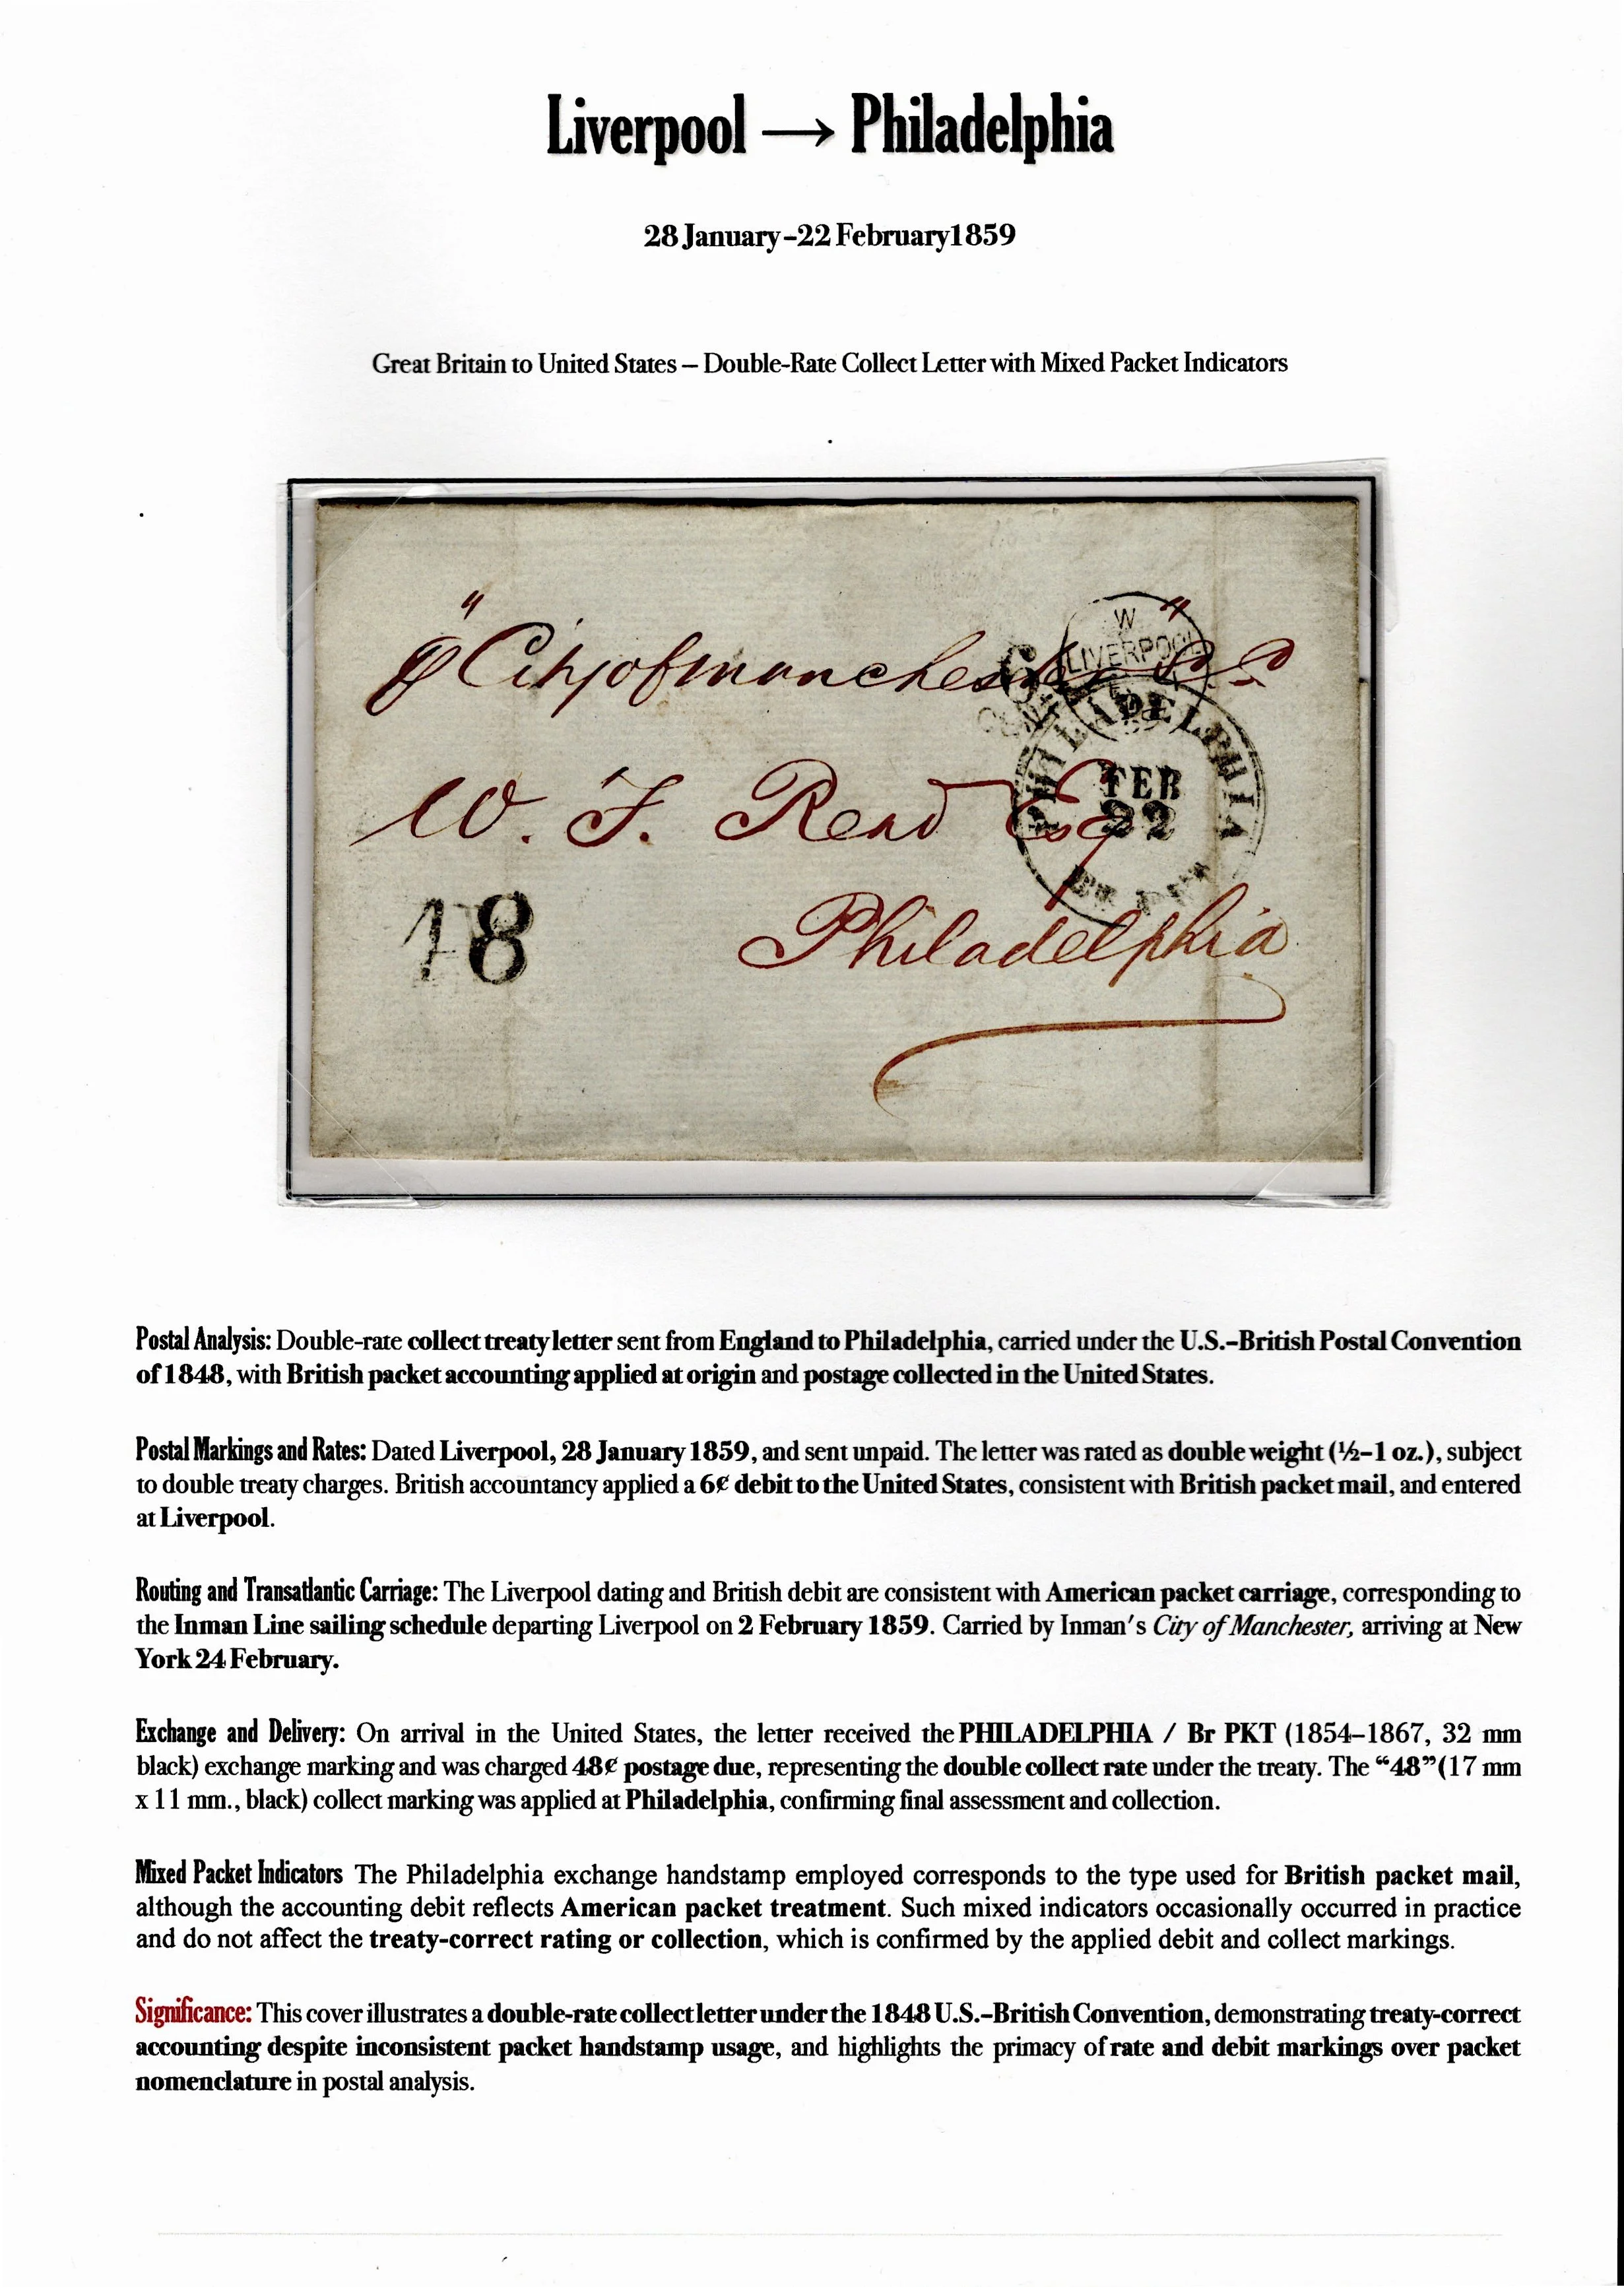 Liverpool → Philadelphia
28 January–22 February1859
Great Britain to United States – Double-Rate Collect Letter with Mixed Packet Indicators
W
LIVERPOOL
℘ "City of Manchester" S.S.
6
CENTS
PHILADELPHIA
FEB
22
BR PKT
W. F. Read Esq
48
Philadelphia
Postal Analysis: Double-rate collect treaty letter sent from England to Philadelphia, carried under the U.S.–British Postal Convention
of 1848, with British packet accounting applied at origin and postage collected in the United States.
Postal Markings and Rates: Dated Liverpool, 28 January 1859, and sent unpaid. The letter was rated as double weight (½–1 oz.), subject
to double treaty charges. British accountancy applied a 6¢ debit to the United States, consistent with British packet mail, and entered
at Liverpool.
Routing and Transatlantic Carriage: The Liverpool dating and British debit are consistent with American packet carriage, corresponding to
the Inman Line sailing schedule departing Liverpool on 2 February 1859. Carried by Inman's City of Manchester, arriving at New
York 24 February.
Exchange and Delivery: On arrival in the United States, the letter received the PHILADELPHIA / Br PKT (1854–1867, 32 mm
black) exchange marking and was charged 48¢ postage due, representing the double collect rate under the treaty. The “48”(17 mm
x 11 mm., black) collect marking was applied at Philadelphia, confirming final assessment and collection.
Mixed Packet Indicators The Philadelphia exchange handstamp employed corresponds to the type used for British packet mail,
although the accounting debit reflects American packet treatment. Such mixed indicators occasionally occurred in practice
and do not affect the treaty-correct rating or collection, which is confirmed by the applied debit and collect markings.
Significance: This cover illustrates a double-rate collect letter under the 1848 U.S.–British Convention, demonstrating treaty-correct
accounting despite inconsistent packet handstamp usage, and highlights the primacy of rate and debit markings over packet
nomenclature in postal analysis.